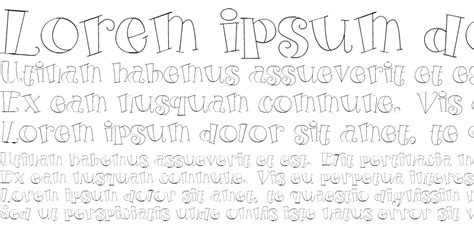 Lorem ipsum do
Utinam habemus assueverit et eo
Ex eam nusquam commune. Vis
Lorem ipsum dolor sit amet, te
Utinam habemus assueverit et eos. Elit pertinacia
Ex eam nusquam commune. Vis eu perpetua interes
Lorem ipsum dolor sit amet, te quaestio dignissim
Sed ut perspiciatis unde omnis iste natus error sit